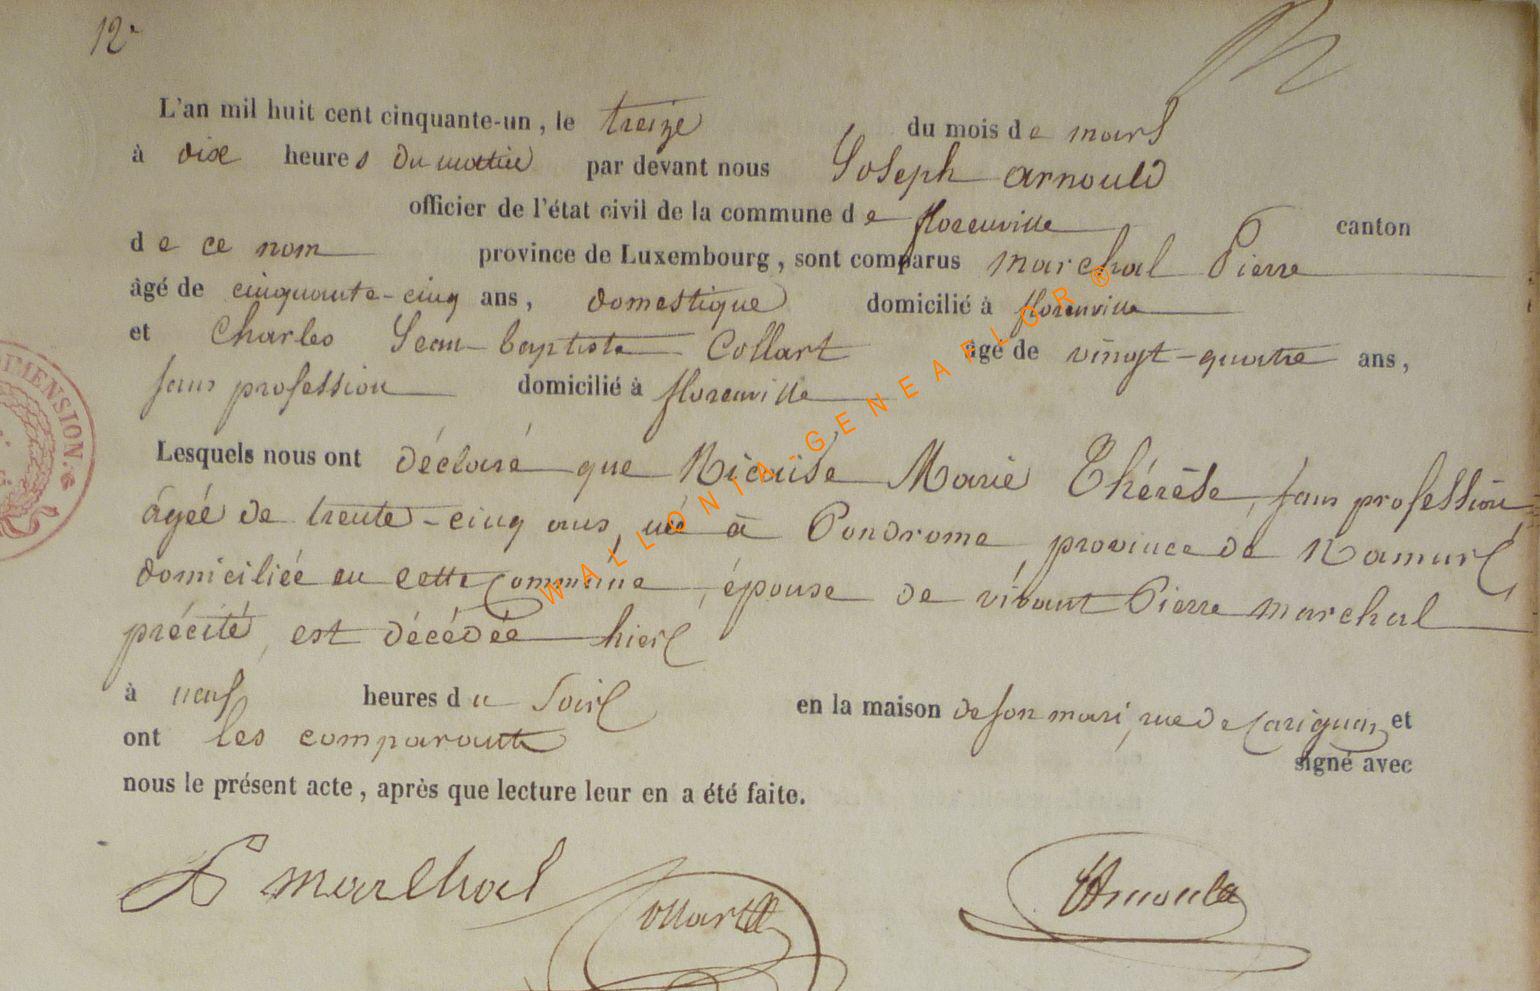 12.
L'an mil huit cent cinquante-un, le treize du mois de mars
à dix heures du matin par devant nous Joseph Arnould
officier de l'état civil de la commune de florenville canton
de ce nom province de Luxembourg, sont comparus Marchal Pierre
âgé de cinquante-cinq ans, domestique domicilié à florenville
et Charles Jean baptiste Collart âgé de vingt-quatre ans,
sans profession domicilié à florenville
Lesquels nous ont déclaré que Nicaise Marie Thérèse, sans profession,
âgée de trente-cinq ans, née à Pondrome, province de Namur,
domiciliée en cette commune, épouse de vivant Pierre Marchal
précité, est décédée hier
à neuf heures du soir en la maison de son mari, rue de Carignan et
ont les comparants signé avec
nous le présent acte, après que lecture leur en a été faite.
P Marchal Collart JArnould
DIMENSION.
WALLONIA-GENEAFLOR®